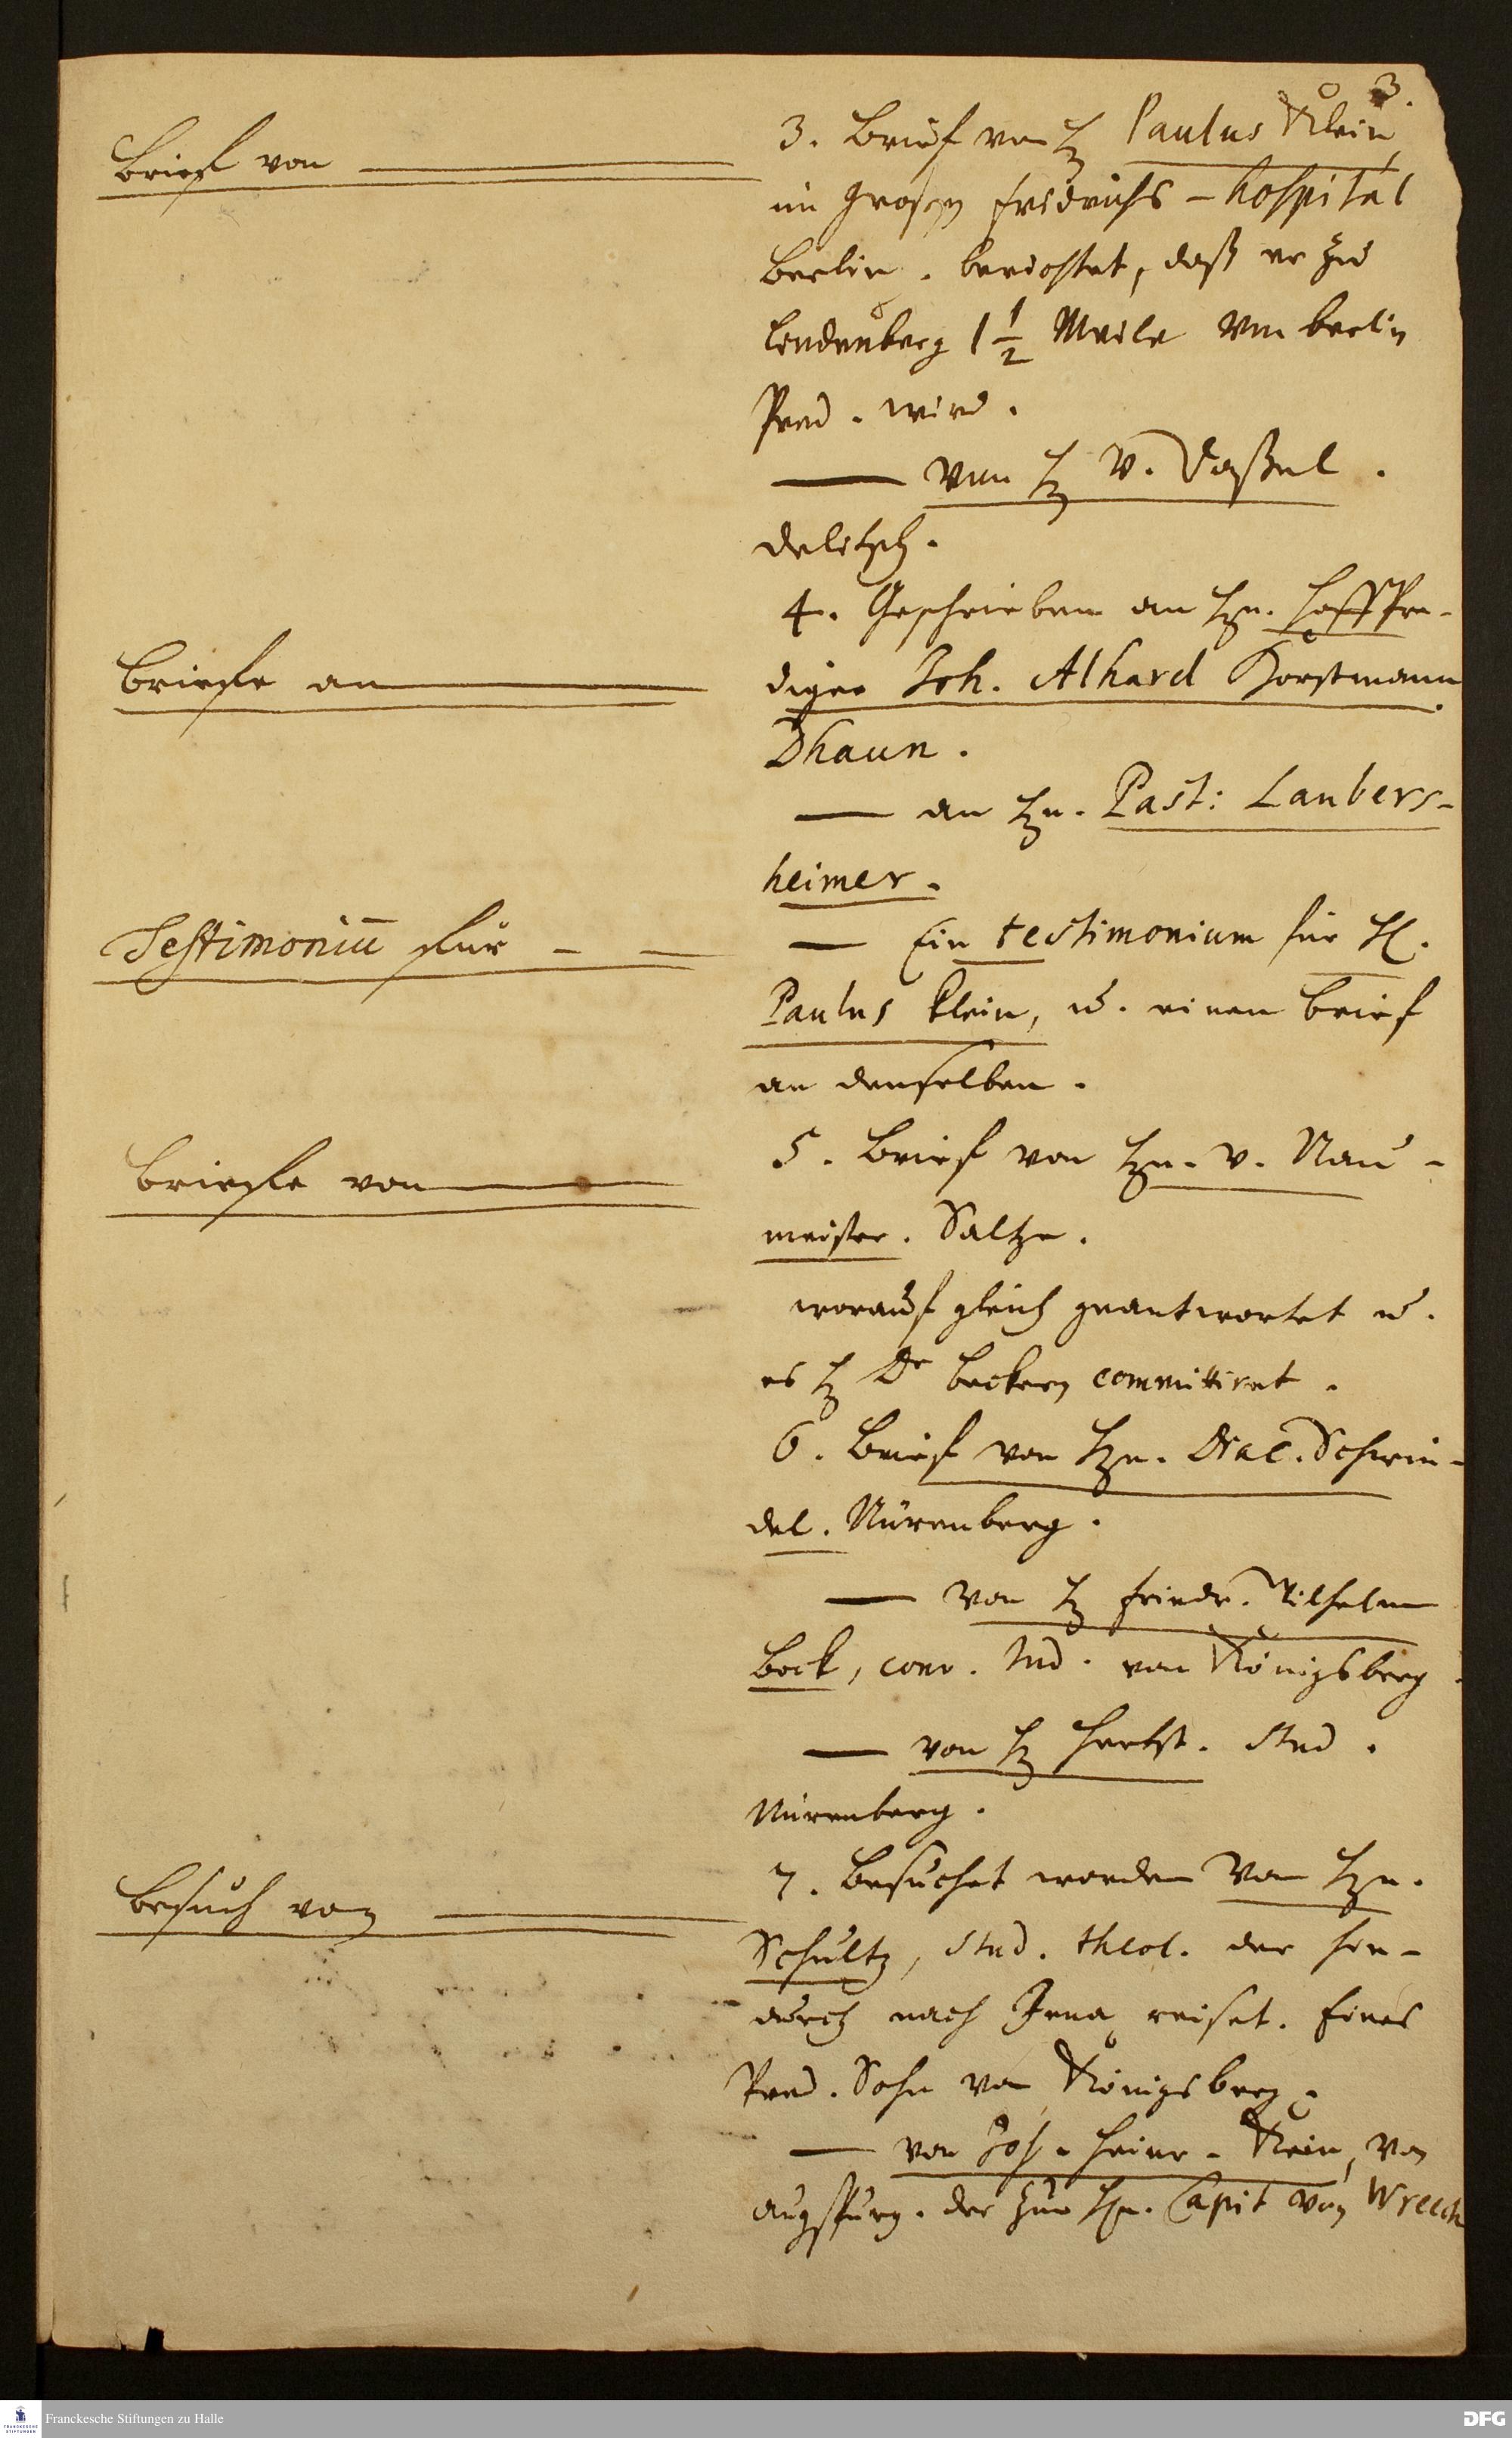 3.
Brief von
3. Brief von H Paulus Klein
im grosen Fridrichs-Hospital
Berlin. berichtet, daß er zu
Lindenberg 1 1/2 Meile von Berlin
Pred. wird.
— von H v. Daßel.
Delitzsch.
4. Geschrieben an Hn. HoffPre-
Briefe an
diger Joh. Alhard Horstmann.
Dhaun.
— an Hn. Past: Laubers-
heimer.
Testimoniū für – —
— Ein testimonium für H.
Paulus Klein, u. einen Brief
an denselben.
Briefe von
5. Brief von Hn. v. Nau-
meister. Saltze.
worauf gleich geantwortet u.
es H Dr Beckern committiret.
6. Brief von Hn. Diac. Schwin-
del. Nürenberg.
— von H Friedr. Wilhelm
Bock, conr. stud. von Königsberg.
— von H Herbst. Stud.
Nürenberg.
Besuch von
7. Besuchet worden von Hn.
Schultz, Stud. theol. der hin-
durch nach Jena reiset. Eines
Pred. Sohn von Königsberg.
— von Joh. Heinr. Klein, von
Augspurg. der zum Hn. Capit von Wreech
Franckesche Stiftungen zu Halle
FRANCKESCHE STIFTUNGEN
DFG